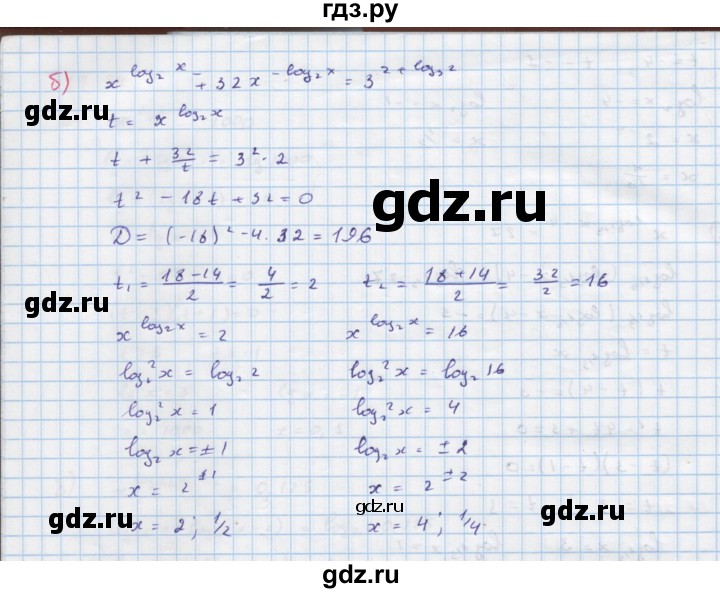 гдз.ру
б) x^(log₂ x) + 32x^(-log₂ x) = 3^(2 + log₃ 2)
gdz.ru
t = x^(log₂ x)
t + 32/t = 3² · 2
t² - 18t + 32 = 0
gdz.ru
D = (-18)² - 4 · 32 = 196
t₁ = (18-14)/2 = 4/2 = 2 t₂ = (18+14)/2 = 32/2 = 16
gdz.ru
x^(log₂ x) = 2 x^(log₂ x) = 16
gdz.ru
log₂² x = log₂ 2 log₂² x = log₂ 16
log₂² x = 1 log₂² x = 4
log₂ x = ± 1 log₂ x = ± 2
x = 2^(±1) x = 2^(±2)
x = 2 ; 1/2 x = 4 ; 1/4
gdz.ru gdz.ru gdz.ru
gdz.ru